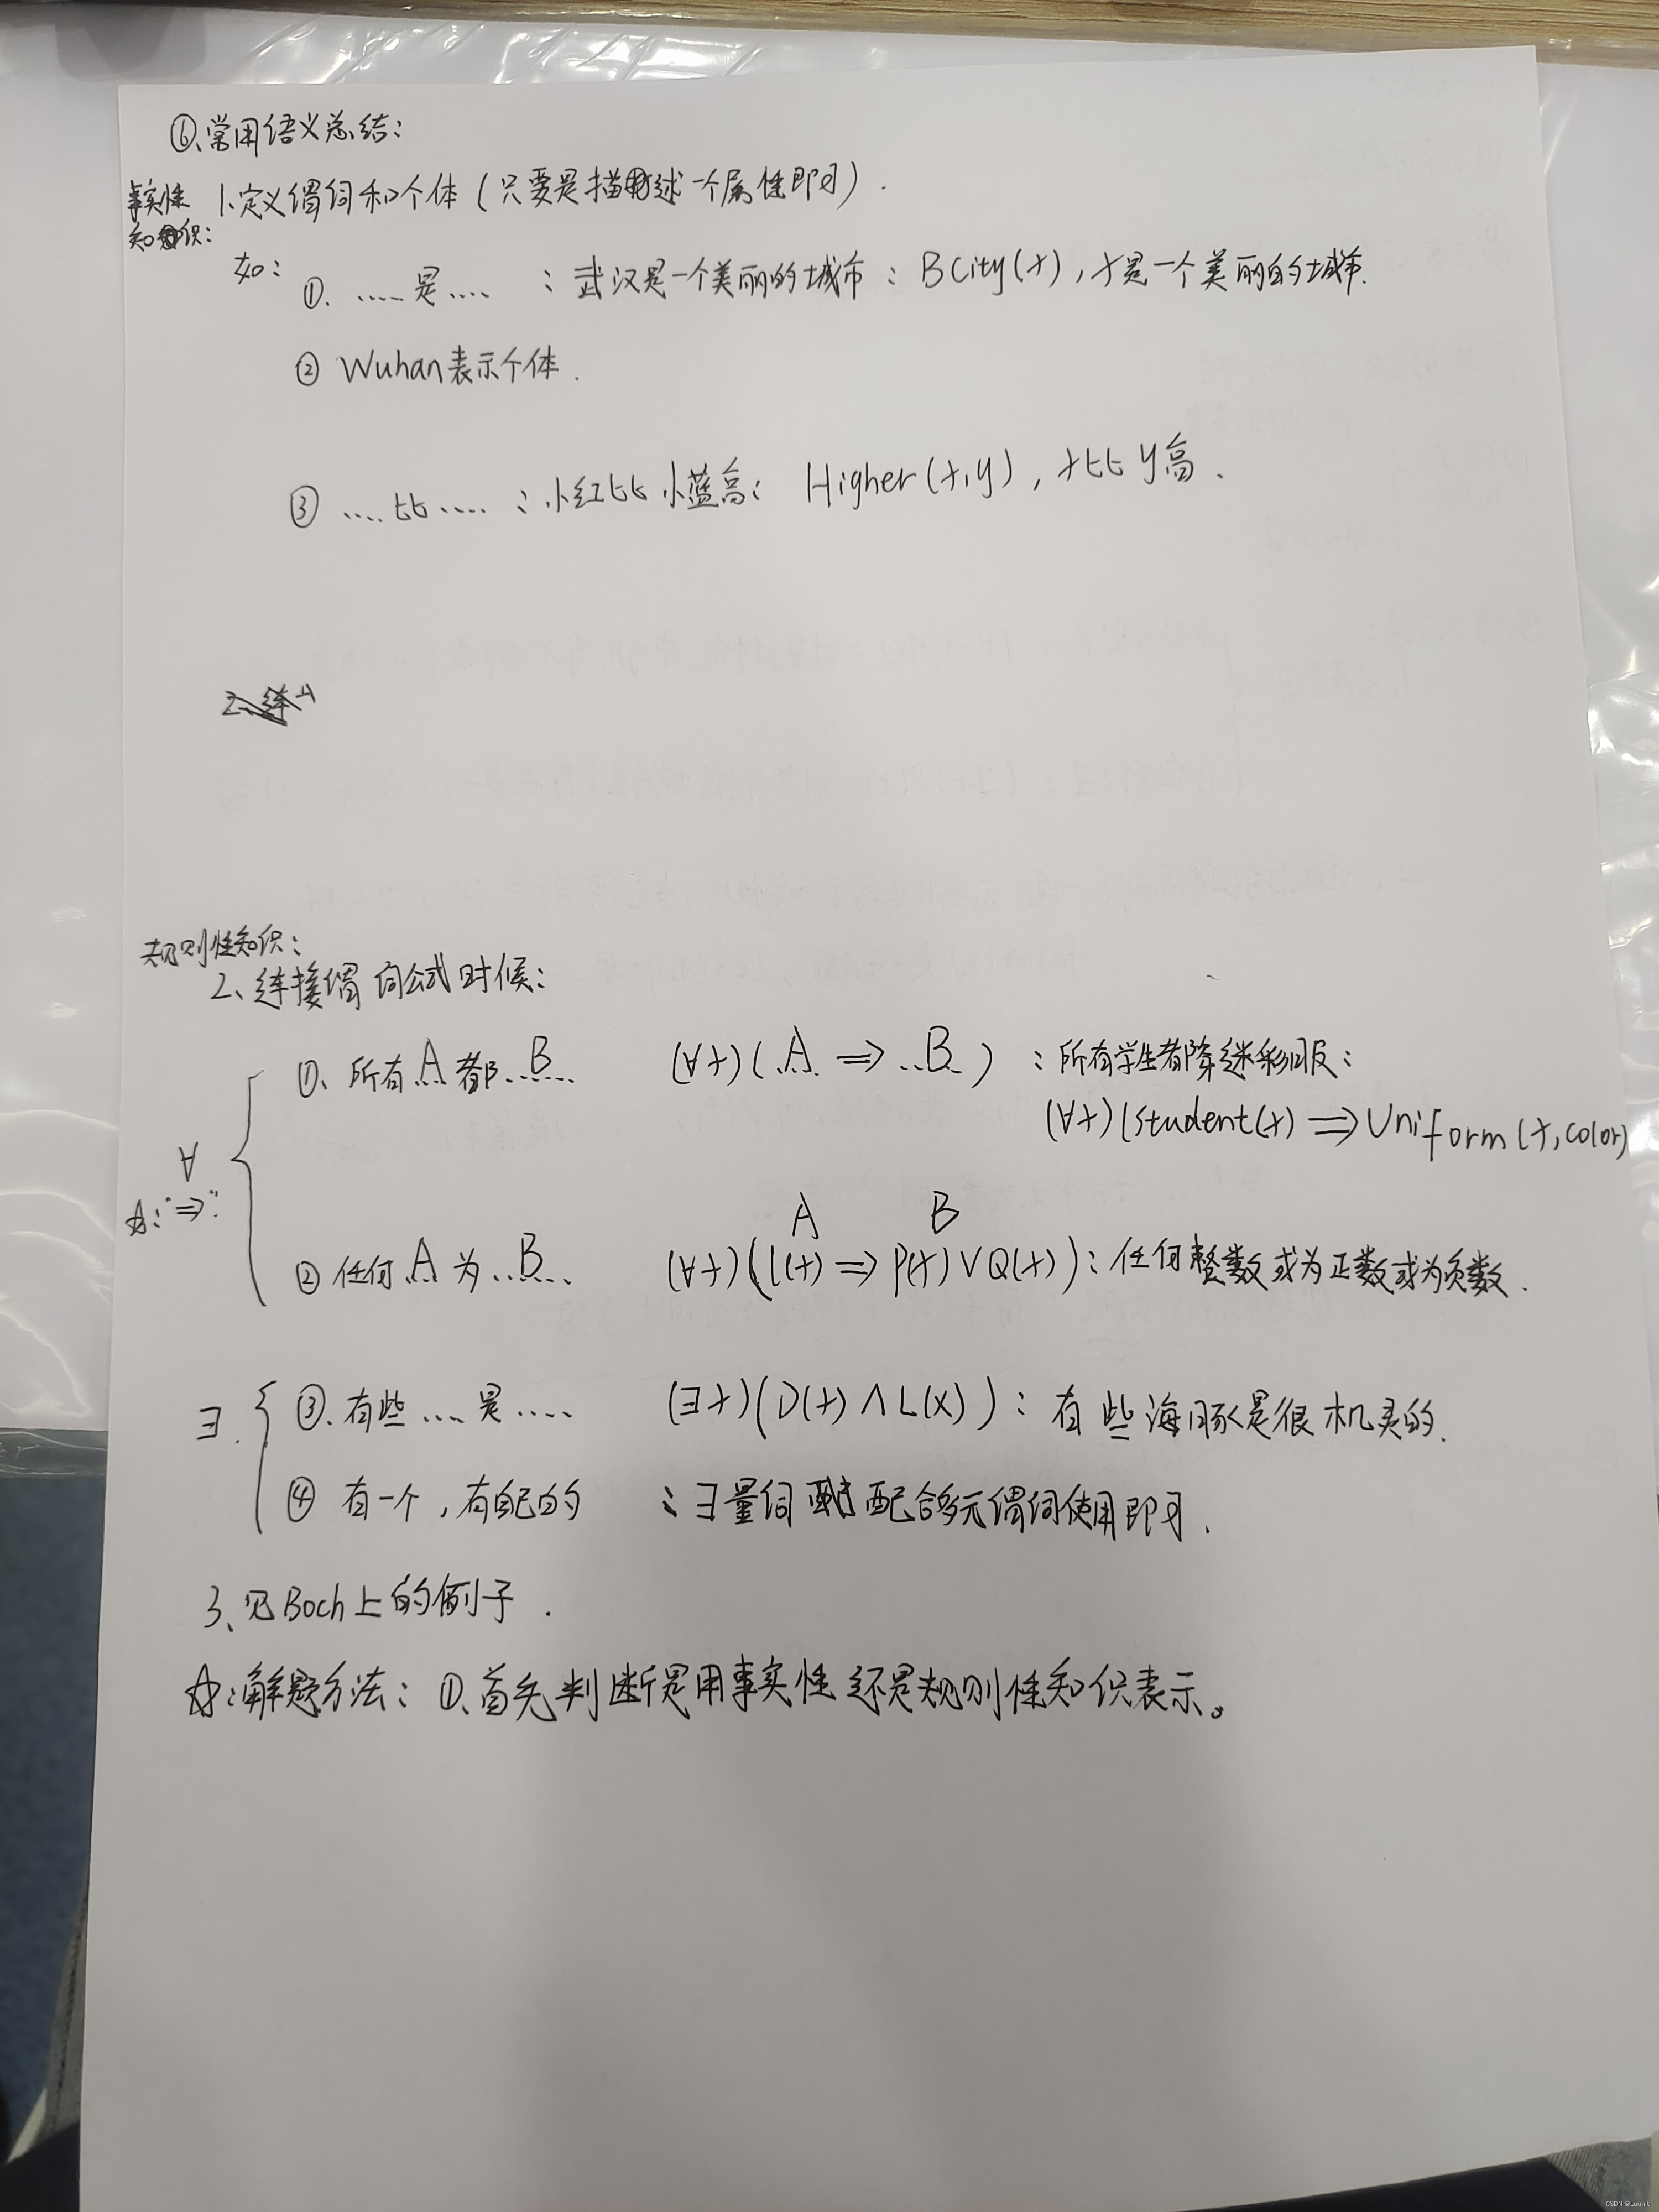 ⑥、常用语义总结：
事实性知识：
1、定义谓词和个体（只要是描述一个属性即可）.
如：①. ……是…… ：武汉是一个美丽的城市：BCity(x)，x是一个美丽的城市.
② Wuhan表示个体.
③ ……比…… ：小红比小蓝高：Higher(x,y)，x比y高.
规则性知识：
2、连接谓词公式时候：
∀
☆："⇒"
①、所有..A..都..B.. (∀x)(..A.. ⇒ ..B..) ：所有学生都穿迷彩服：
(∀x)(student(x) ⇒ Uniform(x,color)
A B
② 任何..A..为..B.. (∀x)(I(x) ⇒ P(x)∨Q(x))：任何整数或为正数或为负数.
∃.
③. 有些……是…… (∃x)(D(x)∧L(x))：有些海豚是很机灵的.
④ 有一个，有自己的 ：∃量词配合多元谓词使用即可.
3、见Boch上的例子.
☆：解题方法：①、首先判断是用事实性还是规则性知识表示。
CSDN @Luxmb